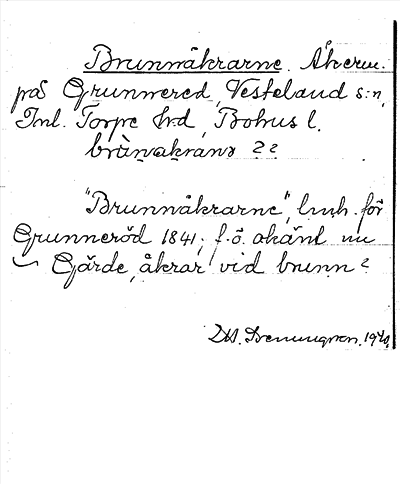 Brunnåkrarne. Åkerm.
på Grunnered, Vesteland s:n,
Inl. Torpe hrd, Bohus l.
brùnakranə ??
"Brunnåkrarne", lmh. för
Grunneröd 1841; f.ö. okänt nu
Gärde, åkrar vid brunn?
1940.